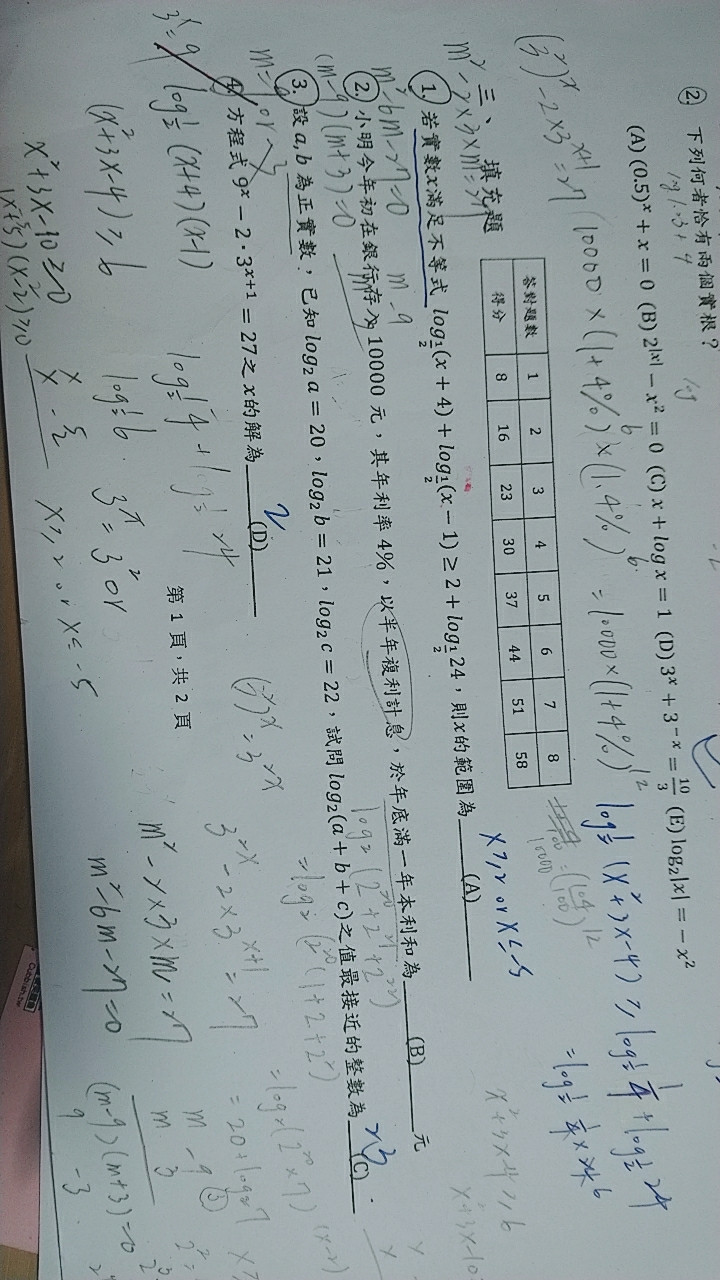 2. 下列何者恰有兩個實根?
(A) (0.5)^x + x = 0 (B) 2^|x| − x² = 0 (C) x + log x = 1 (D) 3^x + 3^−x = 10/3 (E) log₂|x| = −x²
三、填充題
答對題數 1 2 3 4 5 6 7 8
得分 8 16 23 30 37 44 51 58
1. 若實數x滿足不等式 log_{1/2}(x + 4) + log_{1/2}(x − 1) ≥ 2 + log_{1/2}24，則x的範圍為____(A)____
x≥2 or x≤-5
2. 小明今年初在銀行存入10000元，其年利率4%，以半年複利計息，於年底滿一年本利和為____(B)____元
3. 設a,b為正實數，已知log₂a = 20，log₂b = 21，log₂c = 22，試問log₂(a + b + c)之值最接近的整數為__(C)__.
23
4. 方程式 9^x − 2·3^{x+1} = 27之x的解為____(D)____
2
第1頁，共2頁
(3²)^x - 2×3^{x+1} = 27
m² - 2×3×m = 27
m² - 6m - 27 = 0
(m-9)(m+3) = 0
3^x = 9
log_{1/2}(x+4)(x-1)
log_{1/2}4 + log_{1/2}24
(x²+3x-4) ≥ 6
log_{1/2}6
3^x = 3² or
x²+3x-10≥0
(x+5)(x-2)≥0
x≥2 or x≤-5
10000×(1+4%)
=10000×(1+4%)^12
log_{1/2}(x²+3x-4) ≥ log_{1/2}1/4 + log_{1/2}24
= log_{1/2} 1/4×24 6
x²+3x-4≥6
log₂(2^20+2^21+2^22)
= log₂(2^20(1+2+2²)
= log₂(2^20×7)
= 20+log₂7
(3²)^x = 3^{2x}
3^{2x} - 2×3^{x+1} = 27
m² - 2×3×m = 27
m² - 6m - 27 = 0
m -9
m 3
(m-9)(m+3) = 0
9 -3